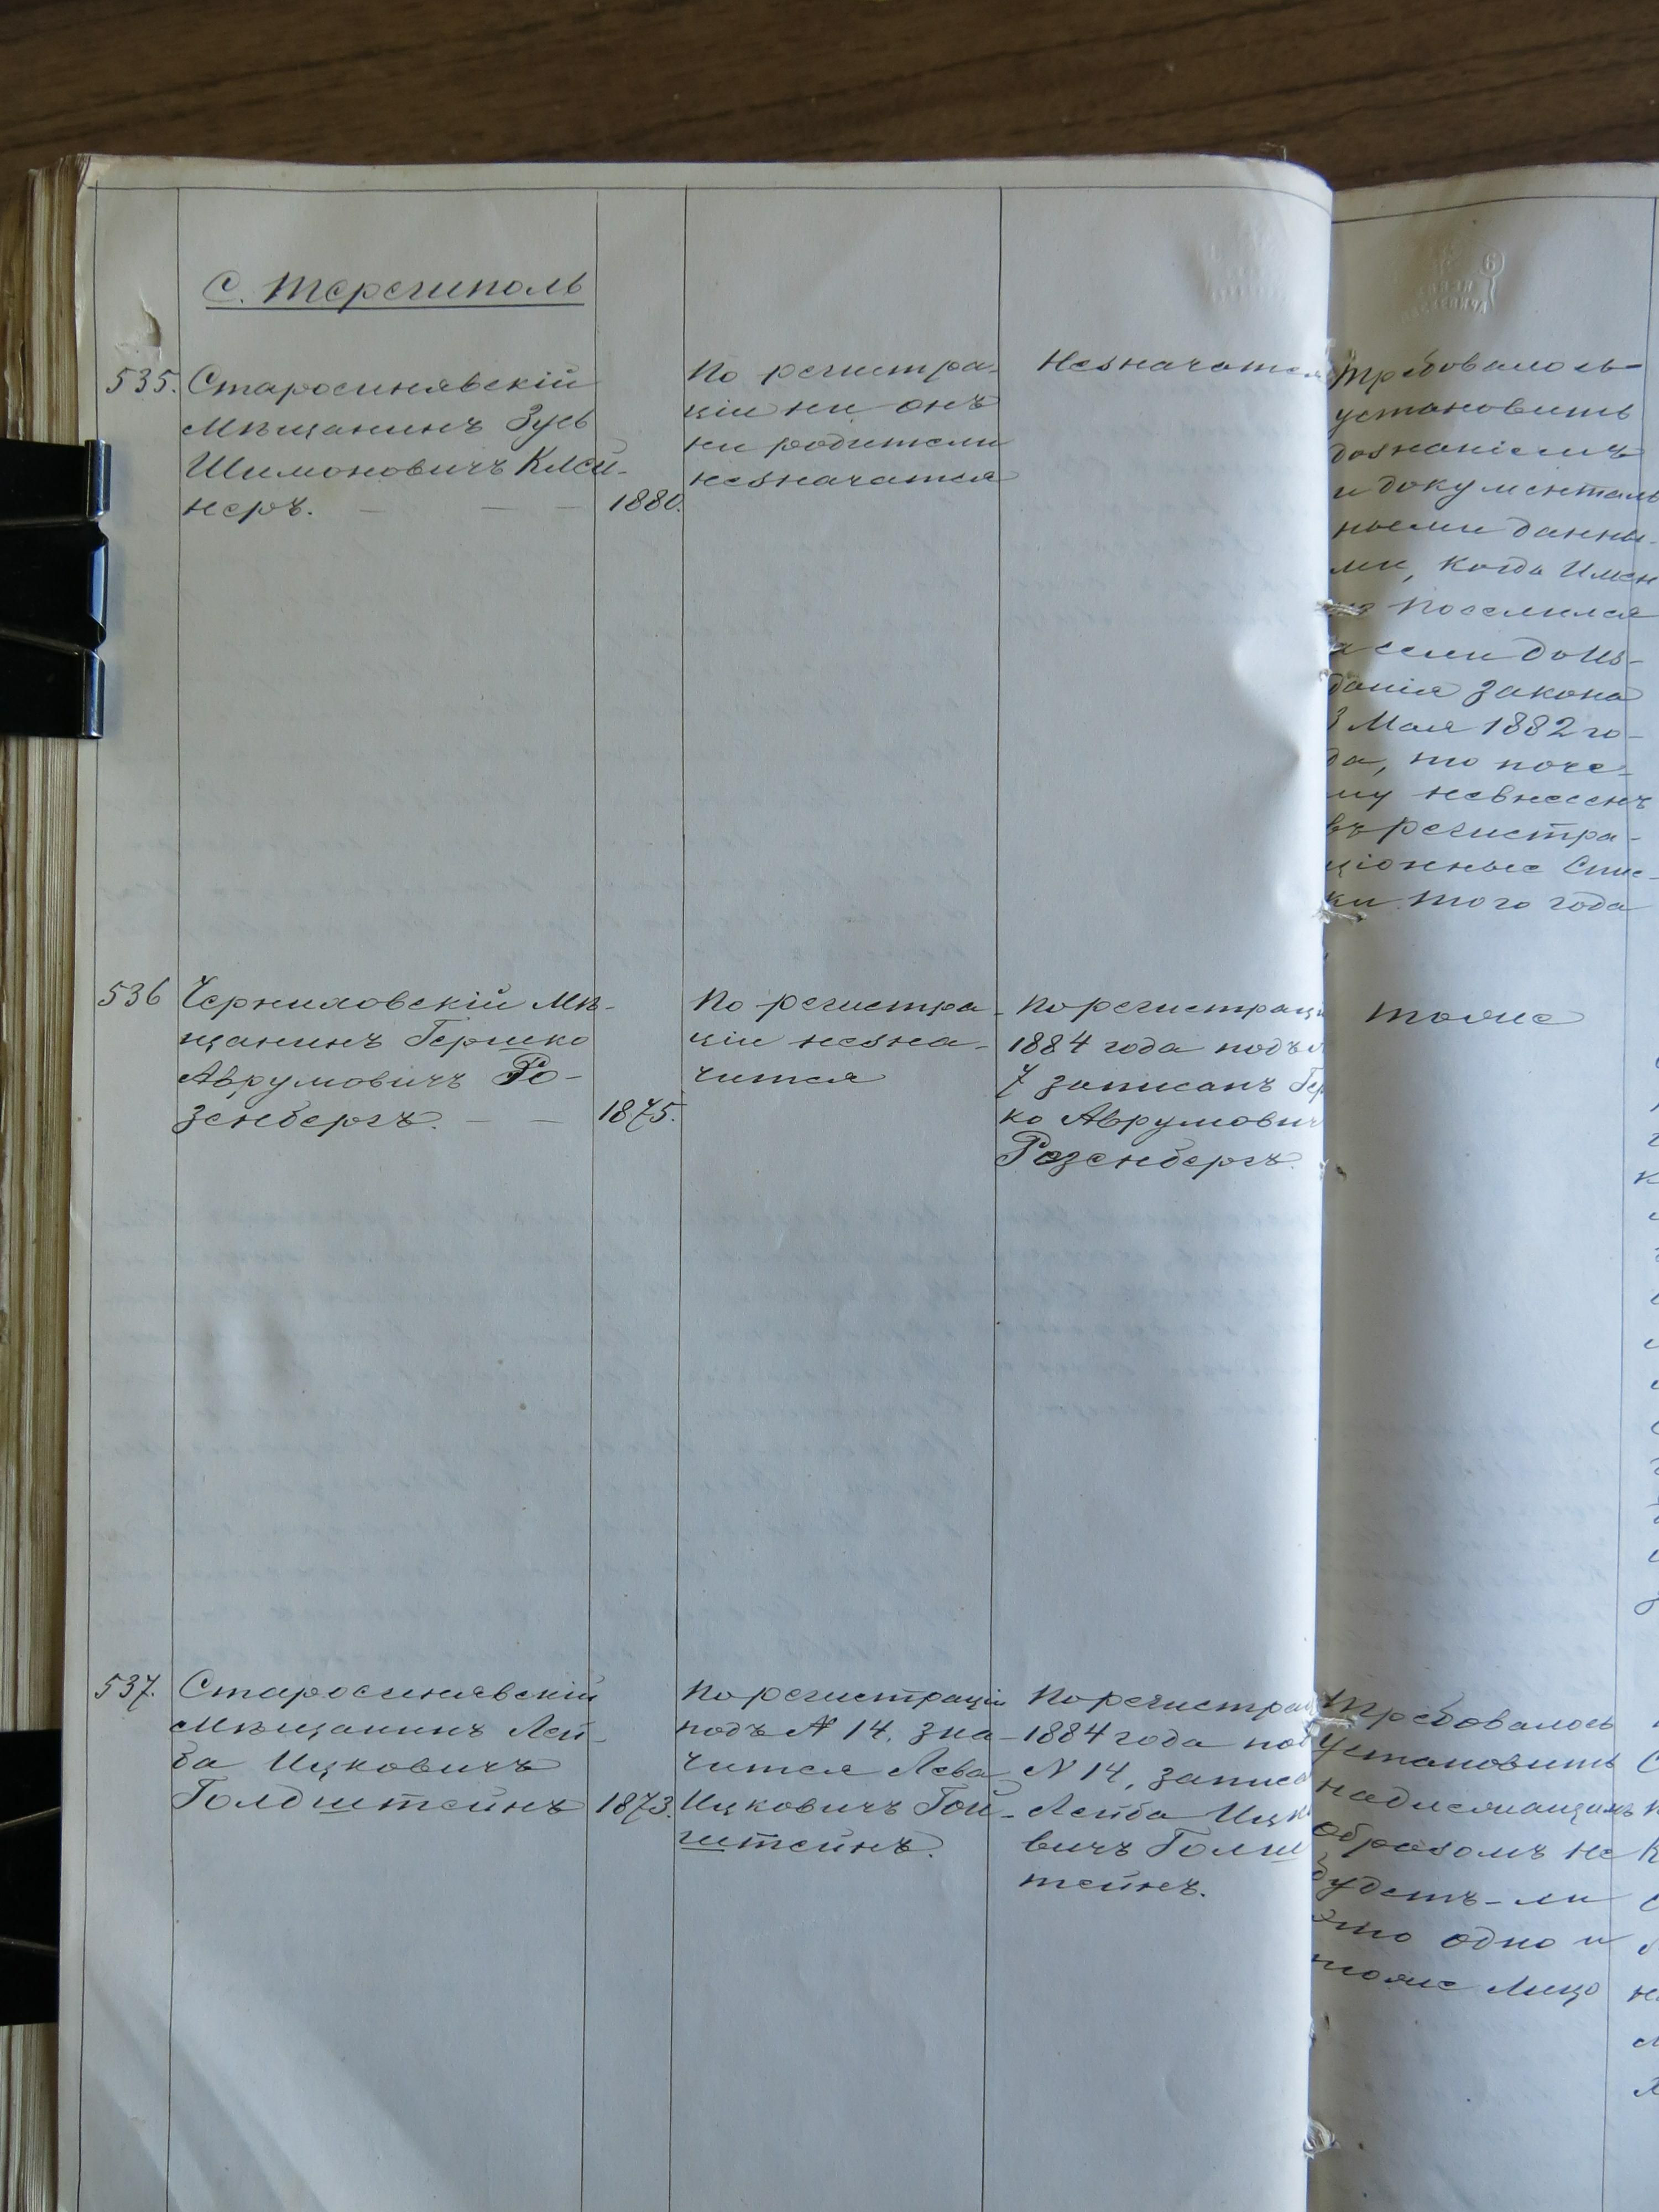 С. Терешполь
535. Старосинявскій
мѣщанинъ Зусь
Шимоновичъ Клей-
неръ. — — — 1880.
По регистра-
ціи ни онъ
ни родители
незначатся
Незначатся
Требовалось
установить
дознаніемъ
и документаль
ными данны-
ми, когда Имен
но поселился
а если до из-
данія закона
3 Мая 1882 го-
да, то поче-
му невнесенъ
въ регистра-
ціонные Спис-
ки того года
536 Черниловскій Мѣ-
щанинъ Гершко
Аврумовичъ Ро-
зенбергъ. — — 1875.
По регистра-
ціи незна-
чится
По регистраціи
1884 года подъ №
7 записанъ Гер
ко Аврумович
Розенбергъ.
тоже
537. Старосинявскій
мѣщанинъ Лей-
ба Ицковичъ
Голдштейнъ 1873.
По регистраціи
подъ № 14. зна-
чится Лева
Ицковичъ Гой-
штейнъ.
По регистрац
1884 года под
N 14, записа
Лейба Ицк
вичъ Голш
тейнъ.
Требовалось
установить
надлежащимъ
образомъ не
будетъ-ли
это одно и
тоже лицо